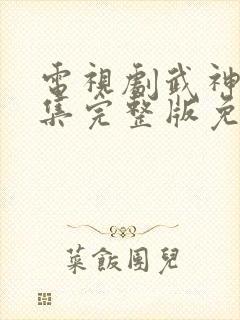 電視劇武神
集完整版免
菜飯團兒